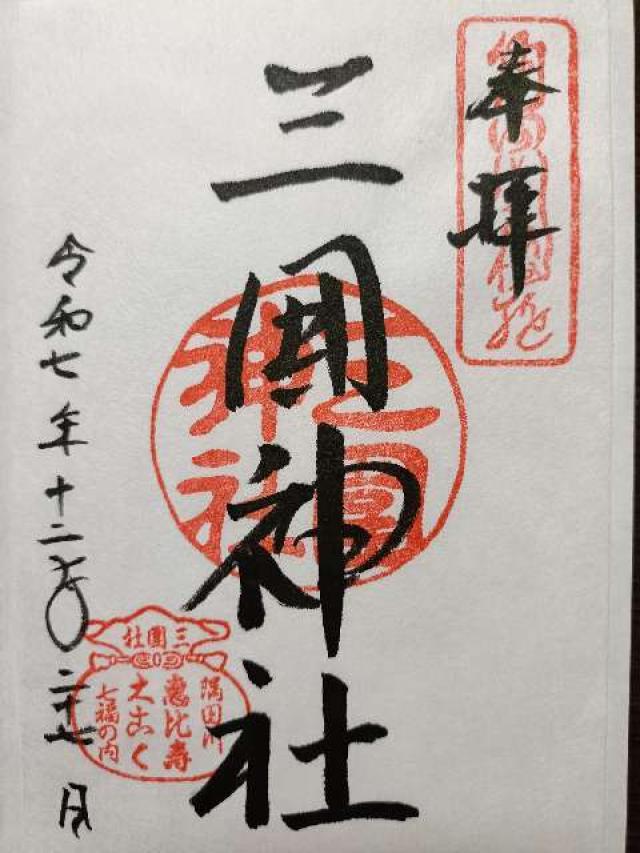 奉拝
三囲神社
三囲神社
令和七年十二月二十七日
三圍社
隅田川
恵比寿
大こく
七福の内